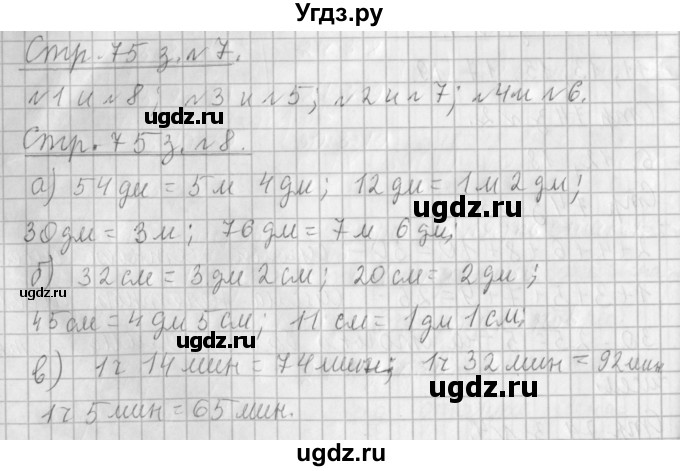 Угдз.ру
Стр. 75 з. №7.
№1 и №8; №3 и №5; №2 и №7; №4 и №6.
ugdz.ru ugdz.ru
Стр. 75 з. №8.
а) 54 дм = 5 м 4 дм; 12 дм = 1 м 2 дм;
ugdz.ru
30 дм = 3 м; 76 дм = 7 м 6 дм;
б) 32 см = 3 дм 2 см; 20 см = 2 дм;
ugdz.ru
45 см = 4 дм 5 см; 11 см = 1 дм 1 см;
ugdz.ru
в) 1 ч 14 мин = 74 мин; 1 ч 32 мин = 92 мин
ugdz.ru
1 ч 5 мин = 65 мин.
ugdz.ru
ugdz.ru